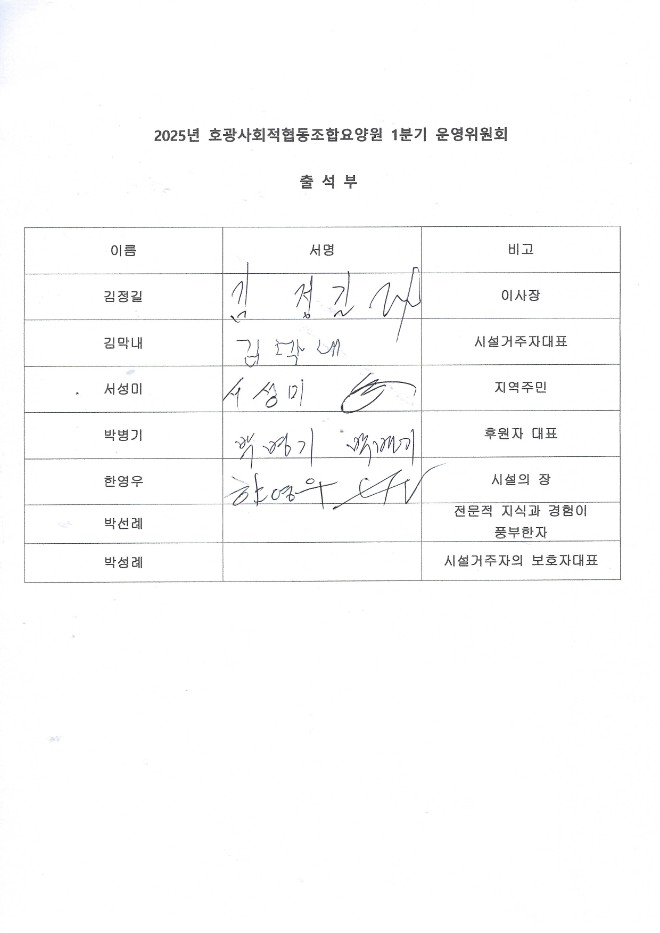 2025년 호광사회적협동조합요양원 1분기 운영위원회
출 석 부
이름 서명 비고
김정길 김 정 길 이사장
김막내 김 막 내 시설거주자대표
서성미 서 성 미 지역주민
박병기 박병기 박병기 후원자 대표
한영우 한영우 시설의 장
박선례 전문적 지식과 경험이
풍부한자
박성례 시설거주자의 보호자대표